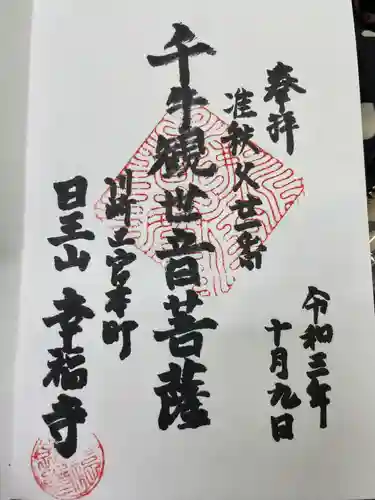 奉拝
准秩父廿番
千手観世音菩薩
川崎二宮本町
日王山 幸福寺
令和三年
十月九日